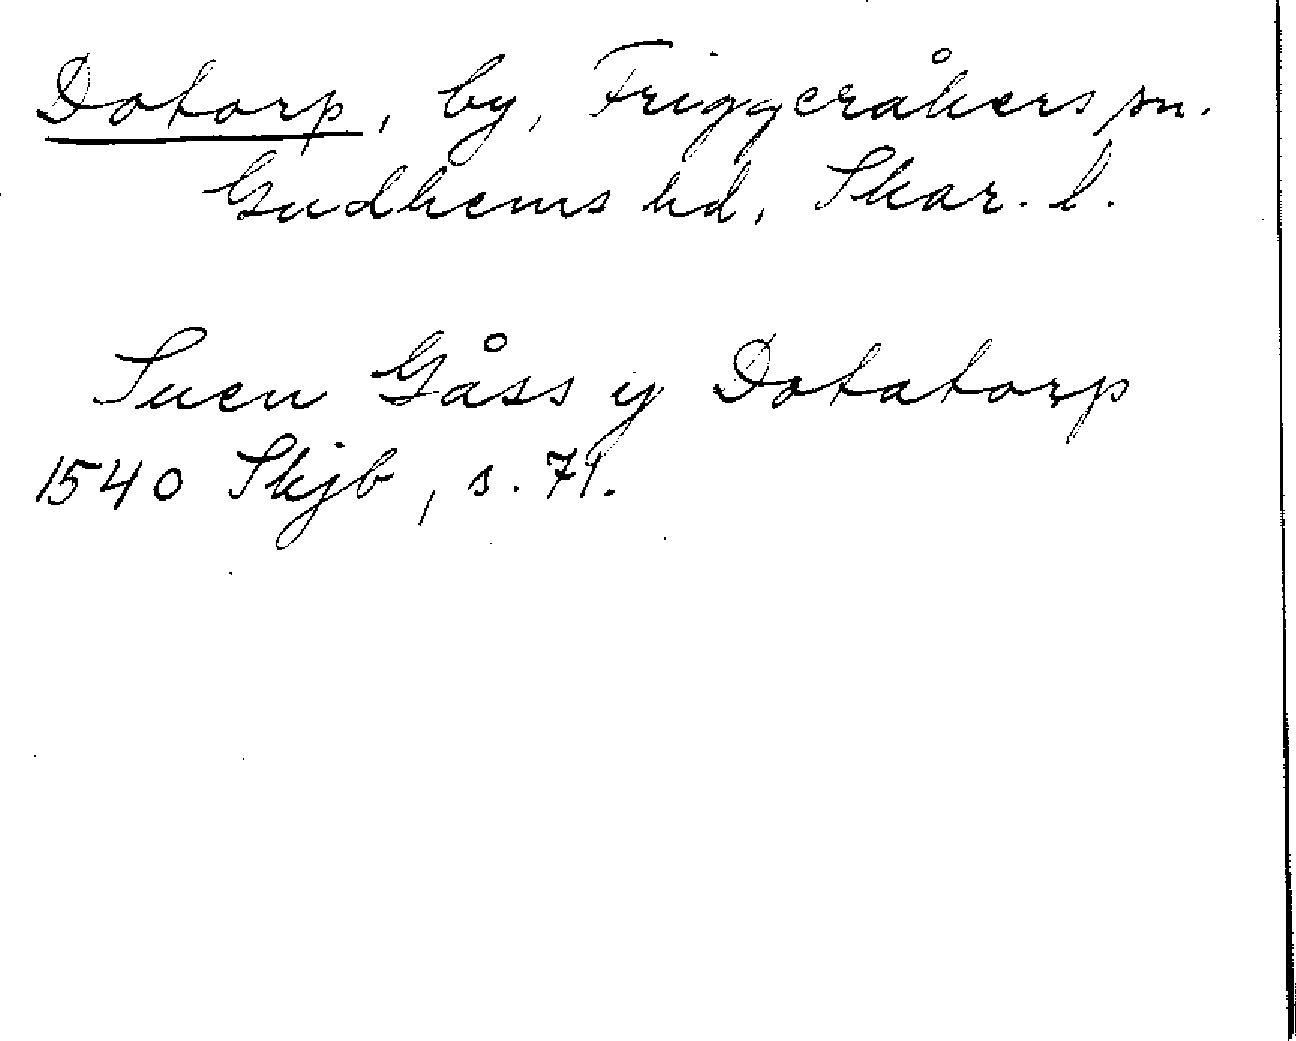 Dotorp, by, Friggeråkers sn.
Gudhems hd, Skar. l.
Suen Gåss ij Dotatorp
1540 Skjb, s. 71.